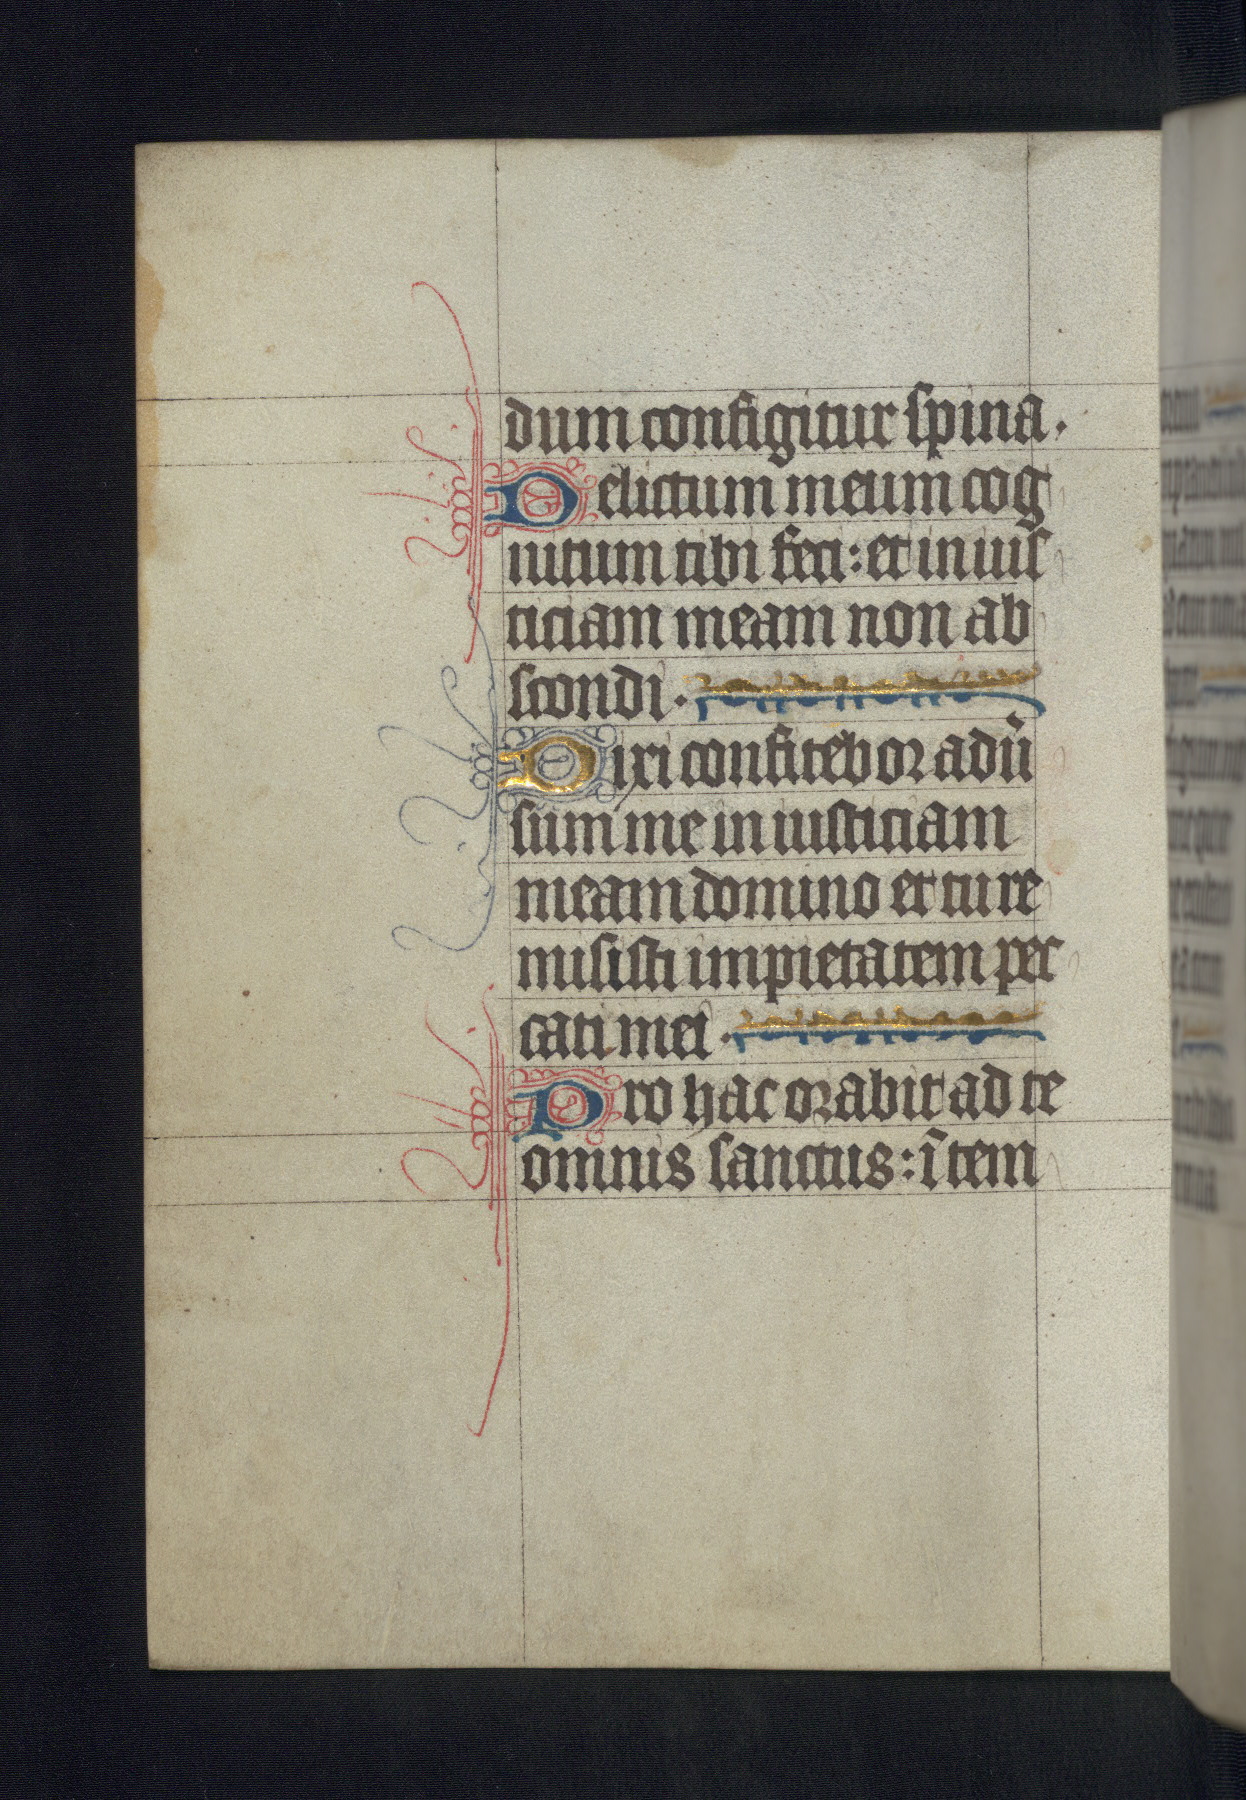 dum configitur spina.
Delictum meum cog
nitum tibi feci: et inius
ticiam meam non ab
scondi.
Dixi confitebor adū
sum me iniusticiam
meam domino et tu re
misisti impietatem pec
cati mei.
Pro hac orabit ad te
omnis sanctus: ī tem